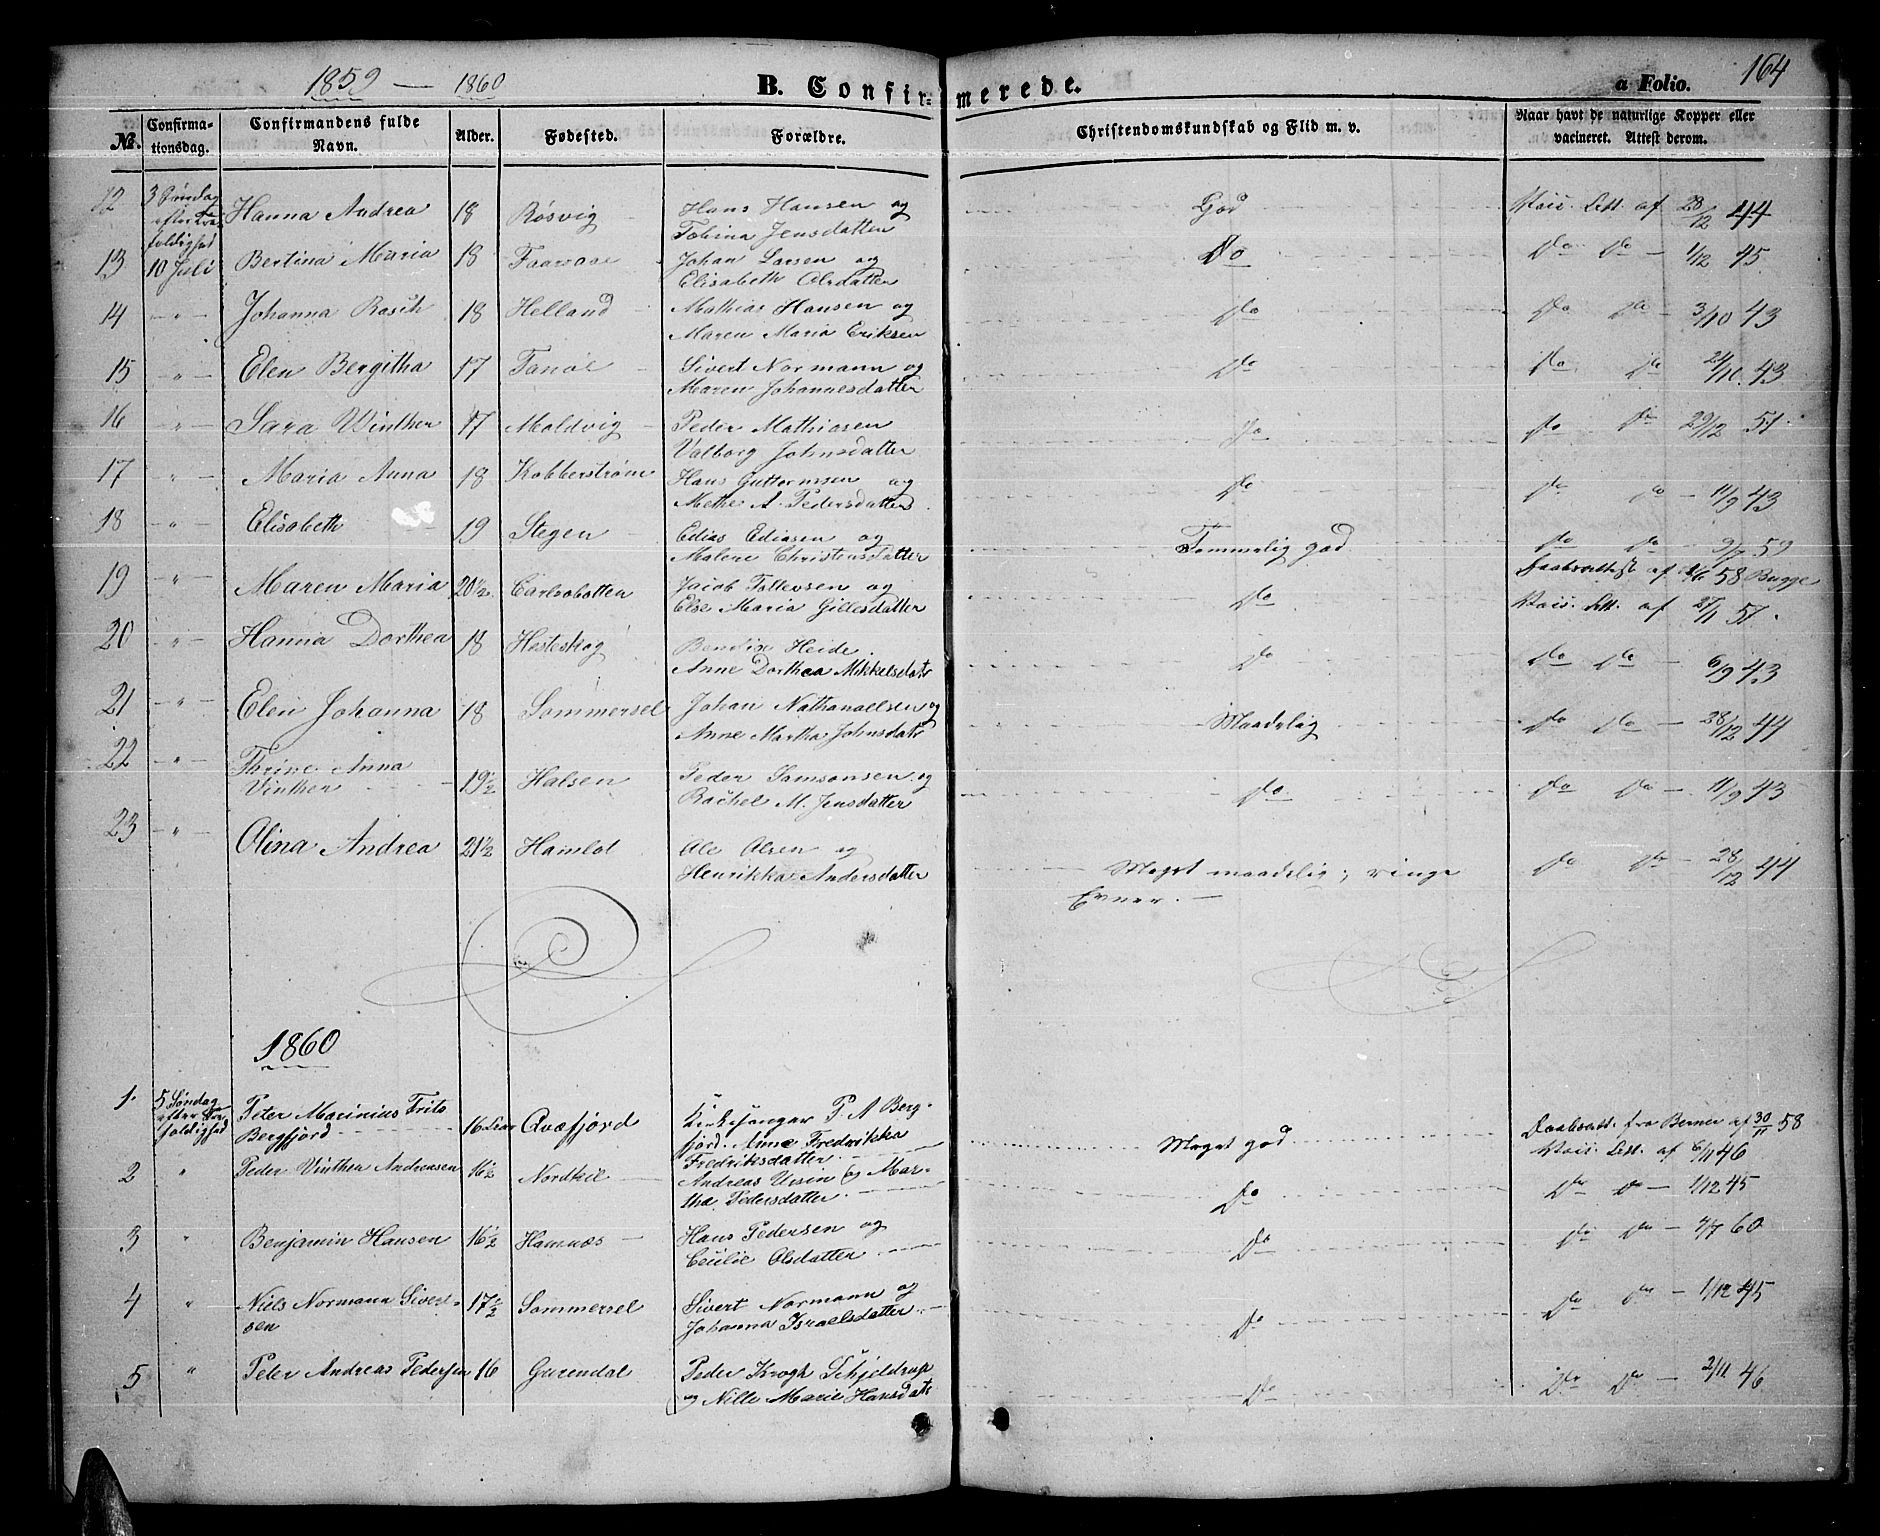 1859 — 1860 B. Confirmerede. a Folio. 164
No. Confirmationsdag. Confirmandens fulde Navn. Alder. Fødested. Forældre. Christendomskundskab og Flid m. v. Naar havt de naturlige Kopper eller vacineret. Attest derom.
12 3 Søndag efter Trefoldighed Hanna Andrea 18 Røsvig Hans Hansen og God Att. af 28/12 44
Jensdatter
13 10 Juli Bertina Maria 18 Johan Larsen og Do Do Do 1/12 45.
Elisabeth Olsdatter
14 — " — Johanna Rasch 18 Helland Mathias Hansen og Do Do Do 3/10 43
Maren Maria Eriksen
15 — " — Elen Bergitha 17 Tanøe Sivert Normann og Do Do Do 24/10. 43
Maren Johannesdatter
16 — " — Sara Winther 17 Moldvig Peder Mathiasen Do Do Do 29/12 51.
Valborg Johnsdatter
17 — " — Maria Anna 18 Kobberstrøm Hans Guttormsen og Do Do Do — 11/9 43
Methe A. Pedersdatter
18 — " — Elisabeth 19 Stegen Edias Ediasen og Temmelig god Do Do — 9/7 59
Malene Christensdatter
19 — " — Maren Maria 20 1/2 Carlsobotten Jacob Tollevsen og Do Daabsattest af 58 Bugge
Else Maria Gillesdatter Att. af 27/11 51.
20 — " — Hanna Dorthea 18 Hesteskog Bendix Heide. Do Do Do — 6/9 43
Anne Dorthea Mikkelsdatr
21 — " — Elen Johanna 18 Sommersel Johan Nathanaelsen og Maadelig Do Do — 28/12 44
Anne Martha Johnsdatr
22 — " — Thrine Anna Vinther 19 1/2 Halsen Peder Samsonsen og Do Do Do — 11/9 43
Rachel M. Jensdatter
23 — " — Olina Andrea 21 1/2 Hamlot Ole Olsen og Meget maadelig; ringe Do Do — 28/12 44
Henrikka Andersdatter Evner. —
1860
1. 5 Søndag efter Trefoldighed Peter Marinius Frits Bergfjord 16 Qvæfjord Kirkesanger P. A Bergfjord. Anne Fredrikka Meget god Daabsatt. fra Berner af 30/11 58
Fredriksdatter Att. af 6/11 46
2 " Peder Vinther Andreasen 16 1/2 Nordkil Andreas Ursin og Martha Pedersdatter Do Do Do — 1/12 45
3 " Benjamin Hansen 16 1/2 Hamnæs Hans Pedersen og Do Do Do — 4/7 60
Cecilie Olsdatter
4 " Niels Normann Sivertsen 17 1/2 Sommersel Sivert Normann og Do Do Do — 1/12 45
Johanna Israelsdatter
5 " Peter Andreas Pedersen 16 Gurendal Peder Krogh Schjeldrup Do Do Do — 2/11 46
og Nille Marie Hansdatr